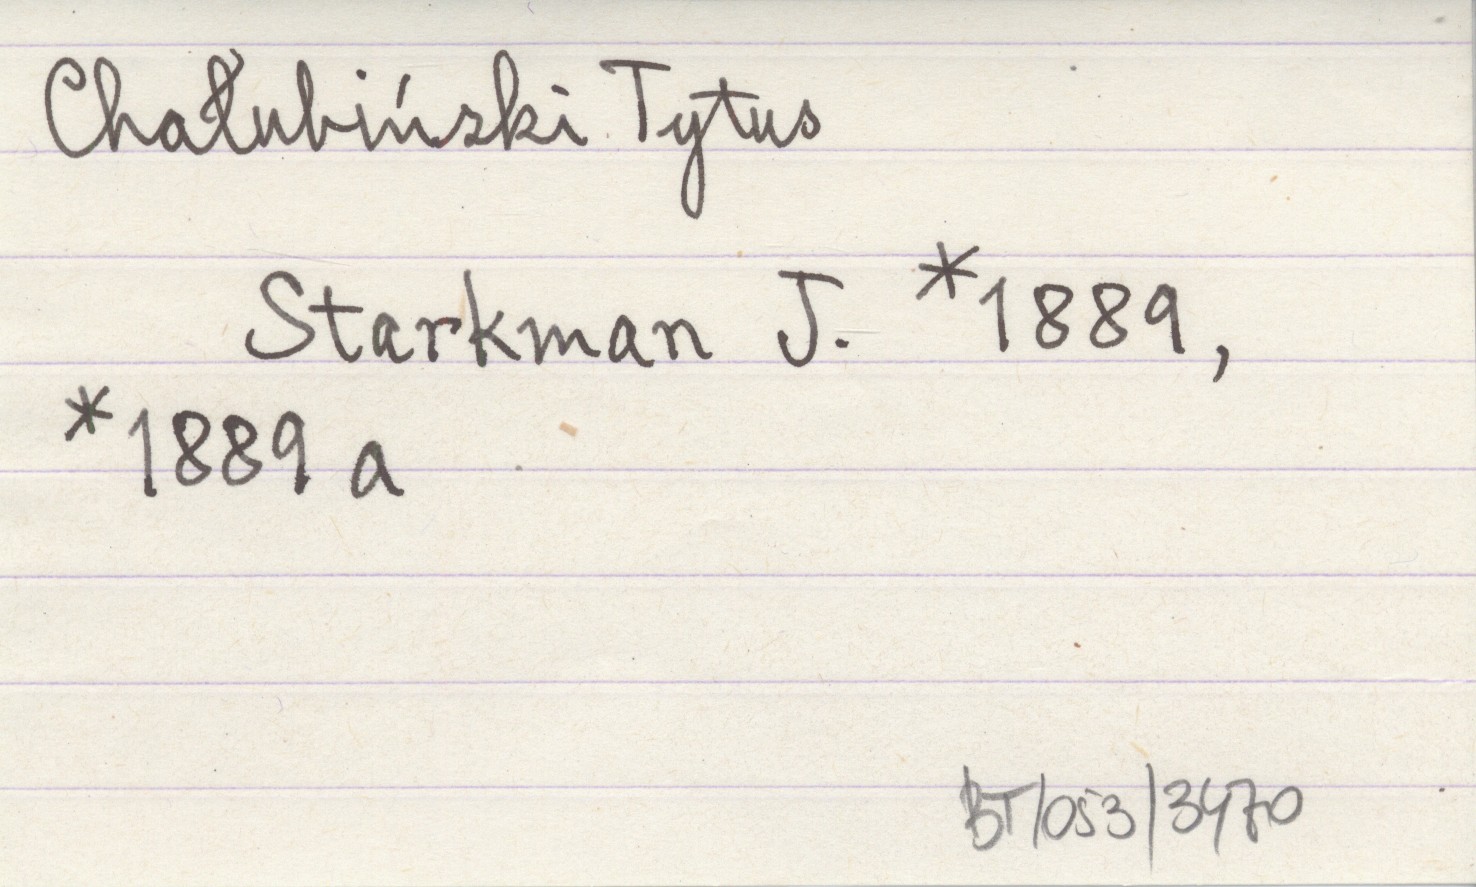 Chałubiński Tytus
Starkman J. *1889,
*1889 a
BT/053/3470